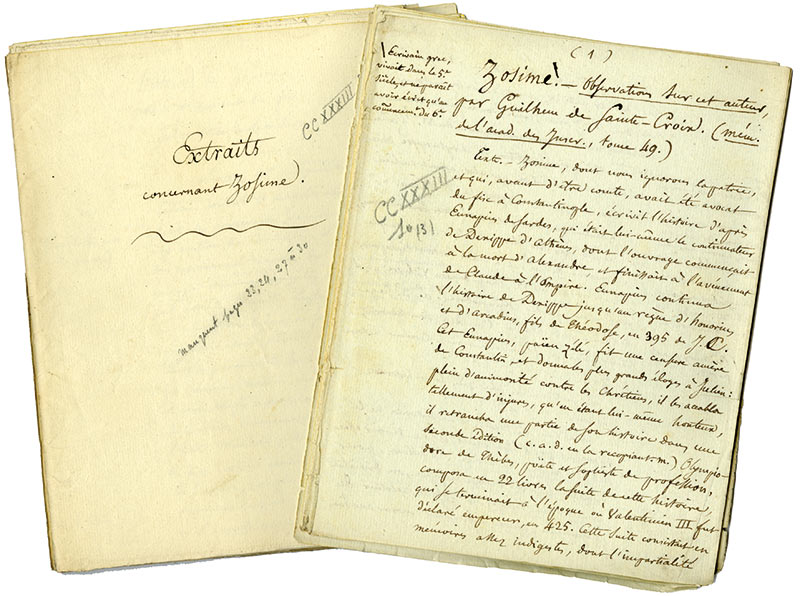 Extraits
concernant Zosime.
CCXXXIII
manquent pages 23, 24, 27 à 30
(1)
Ecrivain grec,
vivait dans le 5e
siècle, et ne paraît
avoir écrit qu'au
commencem. du 6e.
Zosime. — Observations sur cet auteur,
par Guilhem de Sainte-Croix. (mém.
de l'acad. des Inscr., tome 49.)
CCXXXIII
10 (3)
Texte. — Zosime, dont nous ignorons la patrie,
et qui, avant d'être comte, avait été avocat
du fisc à Constantinople, écrivit l'histoire d'après
Eunapius de Sardes, qui était lui-même le continuateur
de Dexippe d'Athènes, dont l'ouvrage commençait
à la mort d'Alexandre et finissait à l'avènement
de Claude à l'Empire. Eunapius continua
l'histoire de Dexippe jusqu'au règne d'honorius
et d'arcadius, fils de Théodose, en 395 de J. C.
Cet Eunapius, païen zélé, fit une censure amère
de Constantin, et donna les plus grands éloges à Julien:
plein d'animosité contre les Chrétiens, il les accabla
tellement d'injures, qu'en étant lui-même honteux,
il retrancha une partie de son histoire dans une
seconde Edition (c.a.d. en la recopiant. m.) Olympio-
dore de Thèbes, poëte et sophiste de profession,
composa en 22 livres la suite de cette histoire,
qui se terminait à l'époque où Valentinien III fut
déclaré empereur, en 425. Cette suite consistait en
mémoires assez indigestes, dont l'impartialité